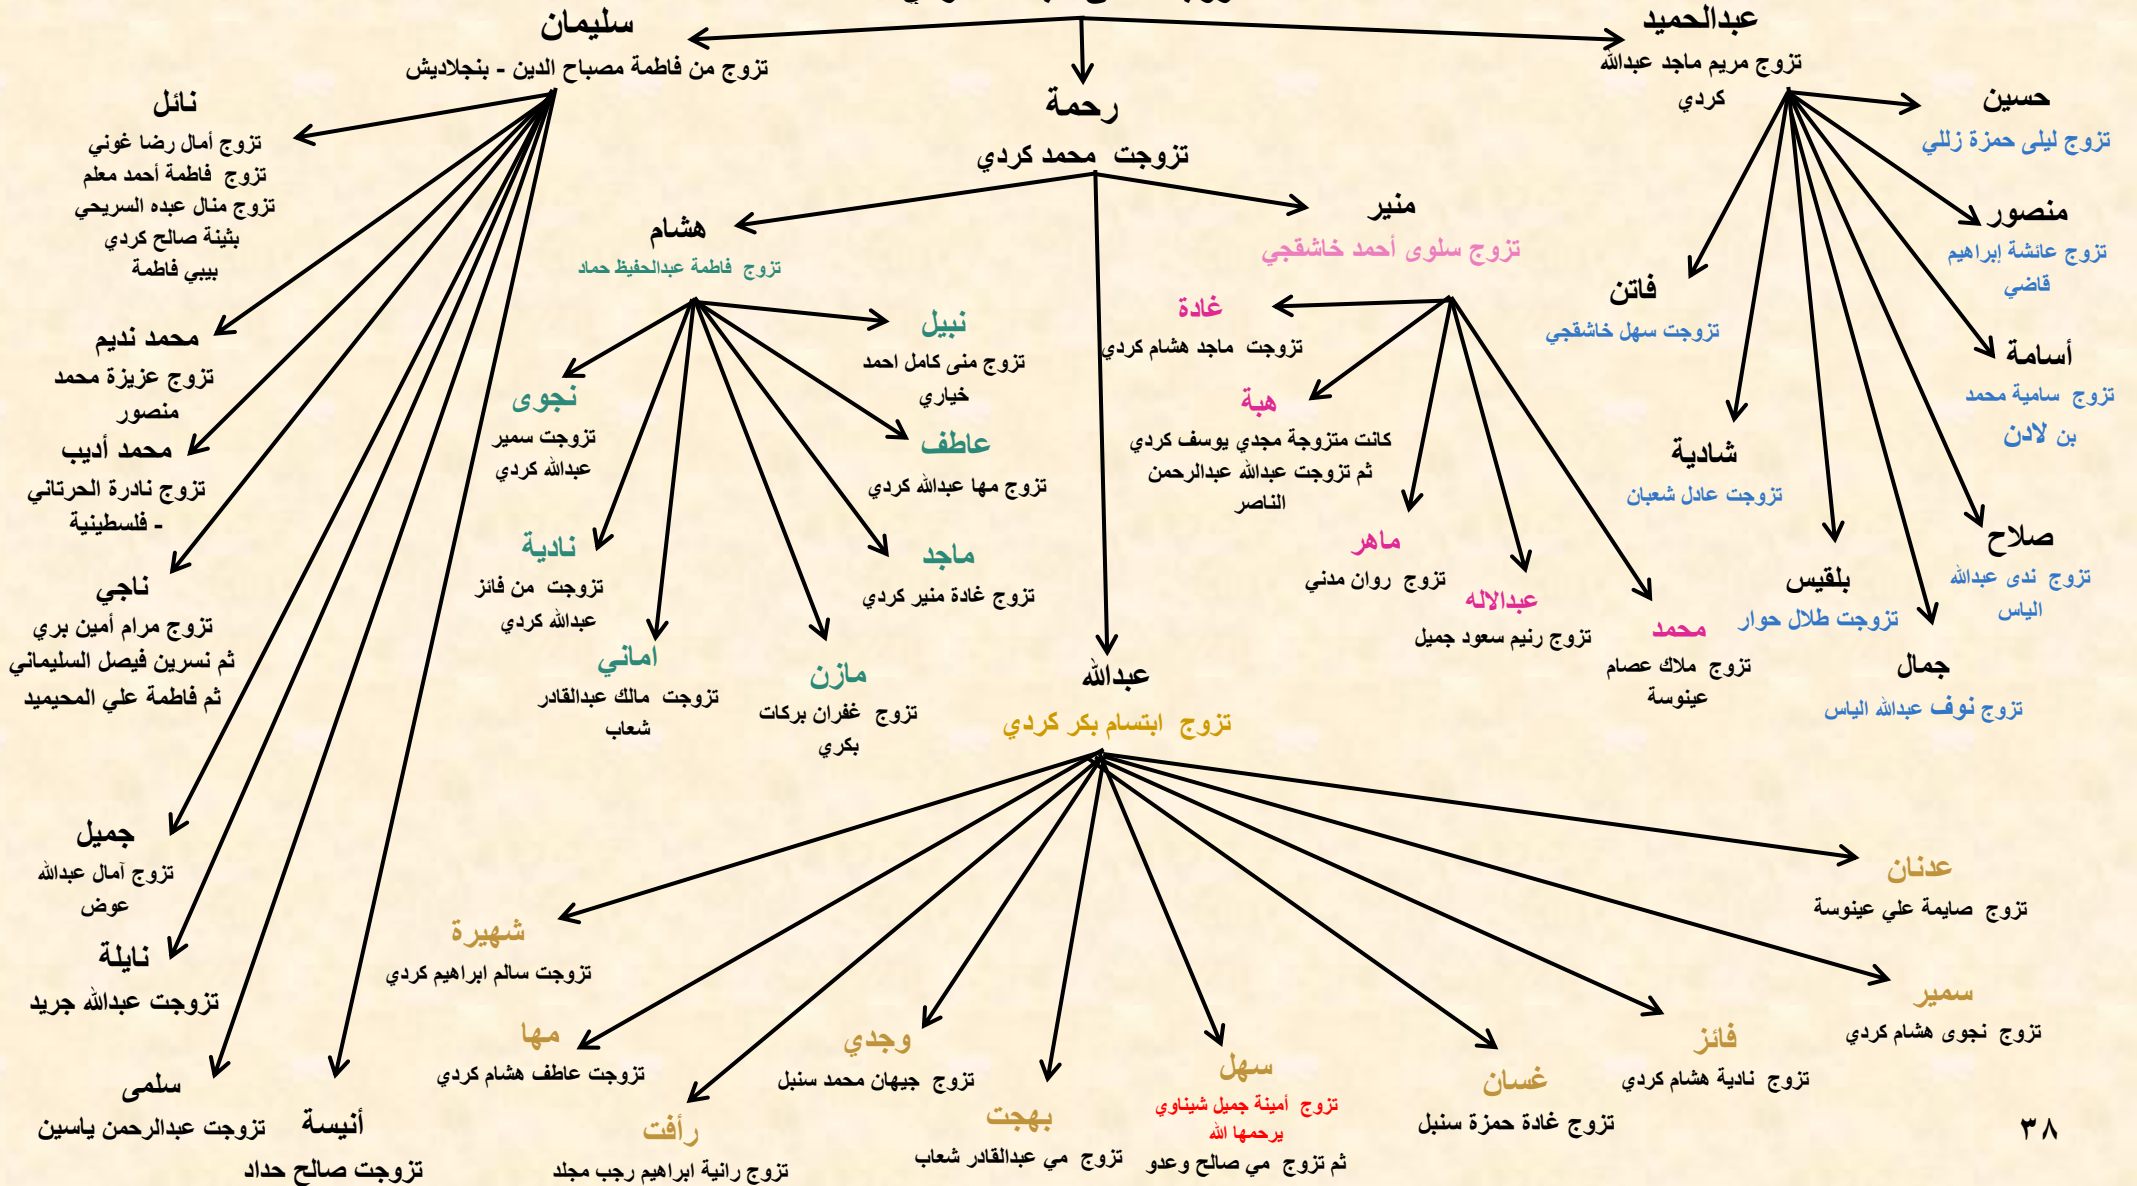 عبدالحميد
تزوج مريم ماجد عبدالله
كردي
سليمان
تزوج من فاطمة مصباح الدين - بنجلاديش
رحمة
تزوجت محمد كردي
حسين
تزوج ليلى حمزة زللي
منصور
تزوج عائشة إبراهيم
قاضي
أسامة
تزوج سامية محمد
بن لادن
صلاح
تزوج ندى عبدالله
الياس
جمال
تزوج نوف عبدالله الياس
بلقيس
تزوجت طلال حوار
شادية
تزوجت عادل شعبان
فاتن
تزوجت سهل خاشقجي
منير
تزوج سلوى أحمد خاشقجي
غادة
تزوجت ماجد هشام كردي
هبة
كانت متزوجة مجدي يوسف كردي
ثم تزوجت عبدالله عبدالرحمن
الناصر
ماهر
تزوج روان مدني
عبدالاله
تزوج رنيم سعود جميل
محمد
تزوج ملاك عصام
عينوسة
هشام
تزوج فاطمة عبدالحفيظ حماد
نبيل
تزوج منى كامل احمد
خياري
عاطف
تزوج مها عبدالله كردي
ماجد
تزوج غادة منير كردي
مازن
تزوج غفران بركات
بكري
اماني
تزوجت مالك عبدالقادر
شعاب
نادية
تزوجت من فائز
عبدالله كردي
نجوى
تزوجت سمير
عبدالله كردي
عبدالله
تزوج ابتسام بكر كردي
عدنان
تزوج صايمة علي عينوسة
سمير
تزوج نجوى هشام كردي
فائز
تزوج نادية هشام كردي
غسان
تزوج غادة حمزة سنبل
سهل
تزوج أمينة جميل شيناوي
يرحمها الله
ثم تزوج مي صالح وعدو
بهجت
تزوج مي عبدالقادر شعاب
وجدي
تزوج جيهان محمد سنبل
رأفت
تزوج رانية ابراهيم رجب مجلد
مها
تزوجت عاطف هشام كردي
شهيرة
تزوجت سالم ابراهيم كردي
نائل
تزوج أمال رضا غوني
تزوج فاطمة أحمد معلم
تزوج منال عبده السريحي
بثينة صالح كردي
بيبي فاطمة
محمد نديم
تزوج عزيزة محمد
منصور
محمد أديب
تزوج نادرة الحرتاني
- فلسطينية
ناجي
تزوج مرام أمين بري
ثم نسرين فيصل السليماني
ثم فاطمة علي المحيميد
جميل
تزوج آمال عبدالله
عوض
نايلة
تزوجت عبدالله جريد
سلمى
تزوجت عبدالرحمن ياسين
أنيسة
تزوجت صالح حداد
٣٨